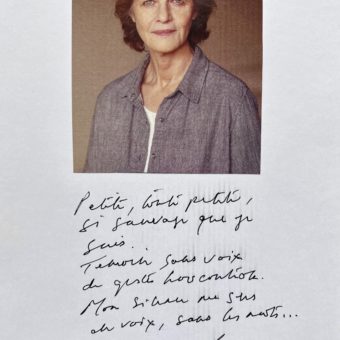 Petite, toute petite,
si sauvage que je
suis..
Témoin sans voix
de gestes hors contrôle.
Mon silence me sers
de voix, sans les mots...